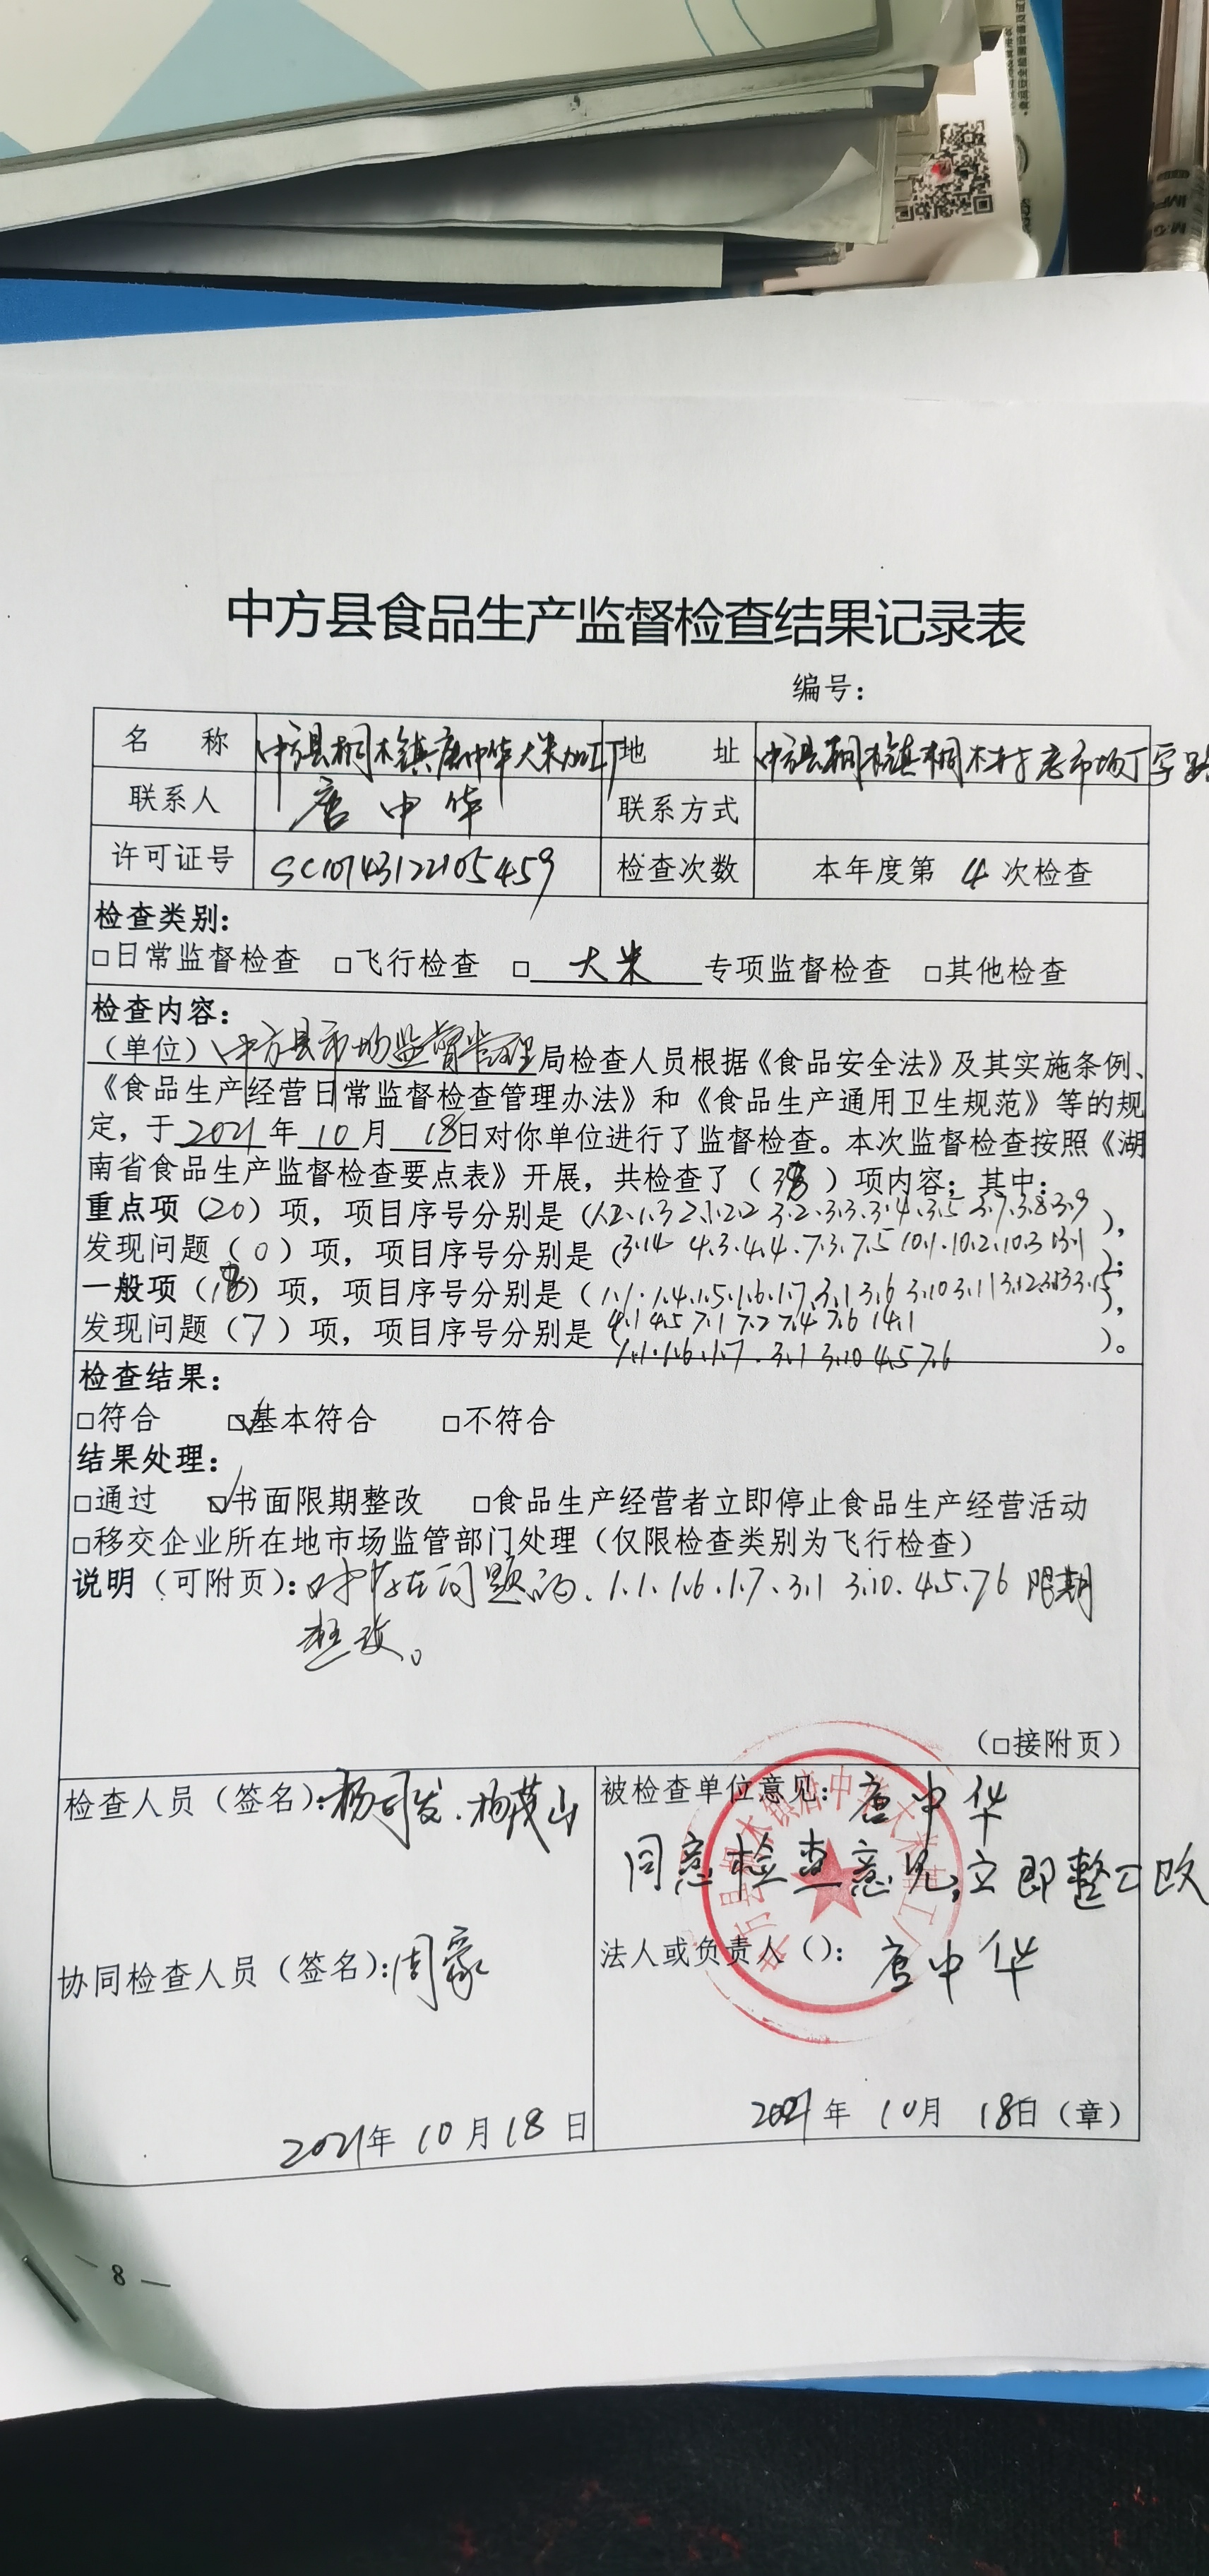 中方县食品生产监督检查结果记录表
编号：
名 称 中方县桐木镇唐中华大米加工厂 地 址 中方县桐木镇桐木村老市场丁字路
联系人 唐中华 联系方式
许可证号 SC10143122105459 检查次数 本年度第 4 次检查
检查类别：
□日常监督检查 □飞行检查 □ 大米 专项监督检查 □其他检查
检查内容：
（单位）中方县市场监督管理局检查人员根据《食品安全法》及其实施条例、
《食品生产经营日常监督检查管理办法》和《食品生产通用卫生规范》等的规
定，于 2021 年 10 月 18日对你单位进行了监督检查。本次监督检查按照《湖
南省食品生产监督检查要点表》开展，共检查了（ ）项内容；其中：
重点项（20）项，项目序号分别是（1.2、1.3 2.1、2.2 3.2、3.3、3.4、3.5 3.7、3.8 3.9 ），
发现问题（0）项，项目序号分别是（3.14 4.3、4.4、7.3、7.5 10.1、10.2、10.3 13.1 ）；
一般项（18）项，项目序号分别是（1.1、1.4、1.5、1.6、1.7、3.1 3.6 3.10 3.11 3.12 3.13 3.15 ），
发现问题（7）项，项目序号分别是（4.1 4.5 7.1 7.2 7.4 7.6 14.1 ）。
1.1、1.6、1.7、3.1 3.10 4.5 7.6
检查结果：
□符合 ☑基本符合 □不符合
结果处理：
□通过 ☑书面限期整改 □食品生产经营者立即停止食品生产经营活动
□移交企业所在地市场监管部门处理（仅限检查类别为飞行检查）
说明（可附页）：对存在问题的、1.1、1.6、1.7、3.1 3.10、4.5、7.6 限期
整改。
（□接附页）
检查人员（签名）：杨 杨茂山
被检查单位意见：唐中华
同意检查意见，立即整改
协同检查人员（签名）：周豪
法人或负责人（）：唐中华
2021年 10月18日
2021年 10月 18日（章）
— 8 —